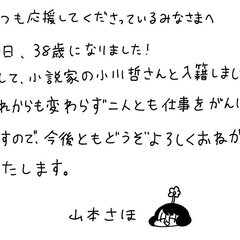 つも応援してくださっているみなさまへ
日、38歳になりました!
して、小説家の小川哲さんと入籍しまし
れからも変わらず二人とも仕事をがん
すので、今後ともどうぞよろしくおねが
たします。
山本さほ